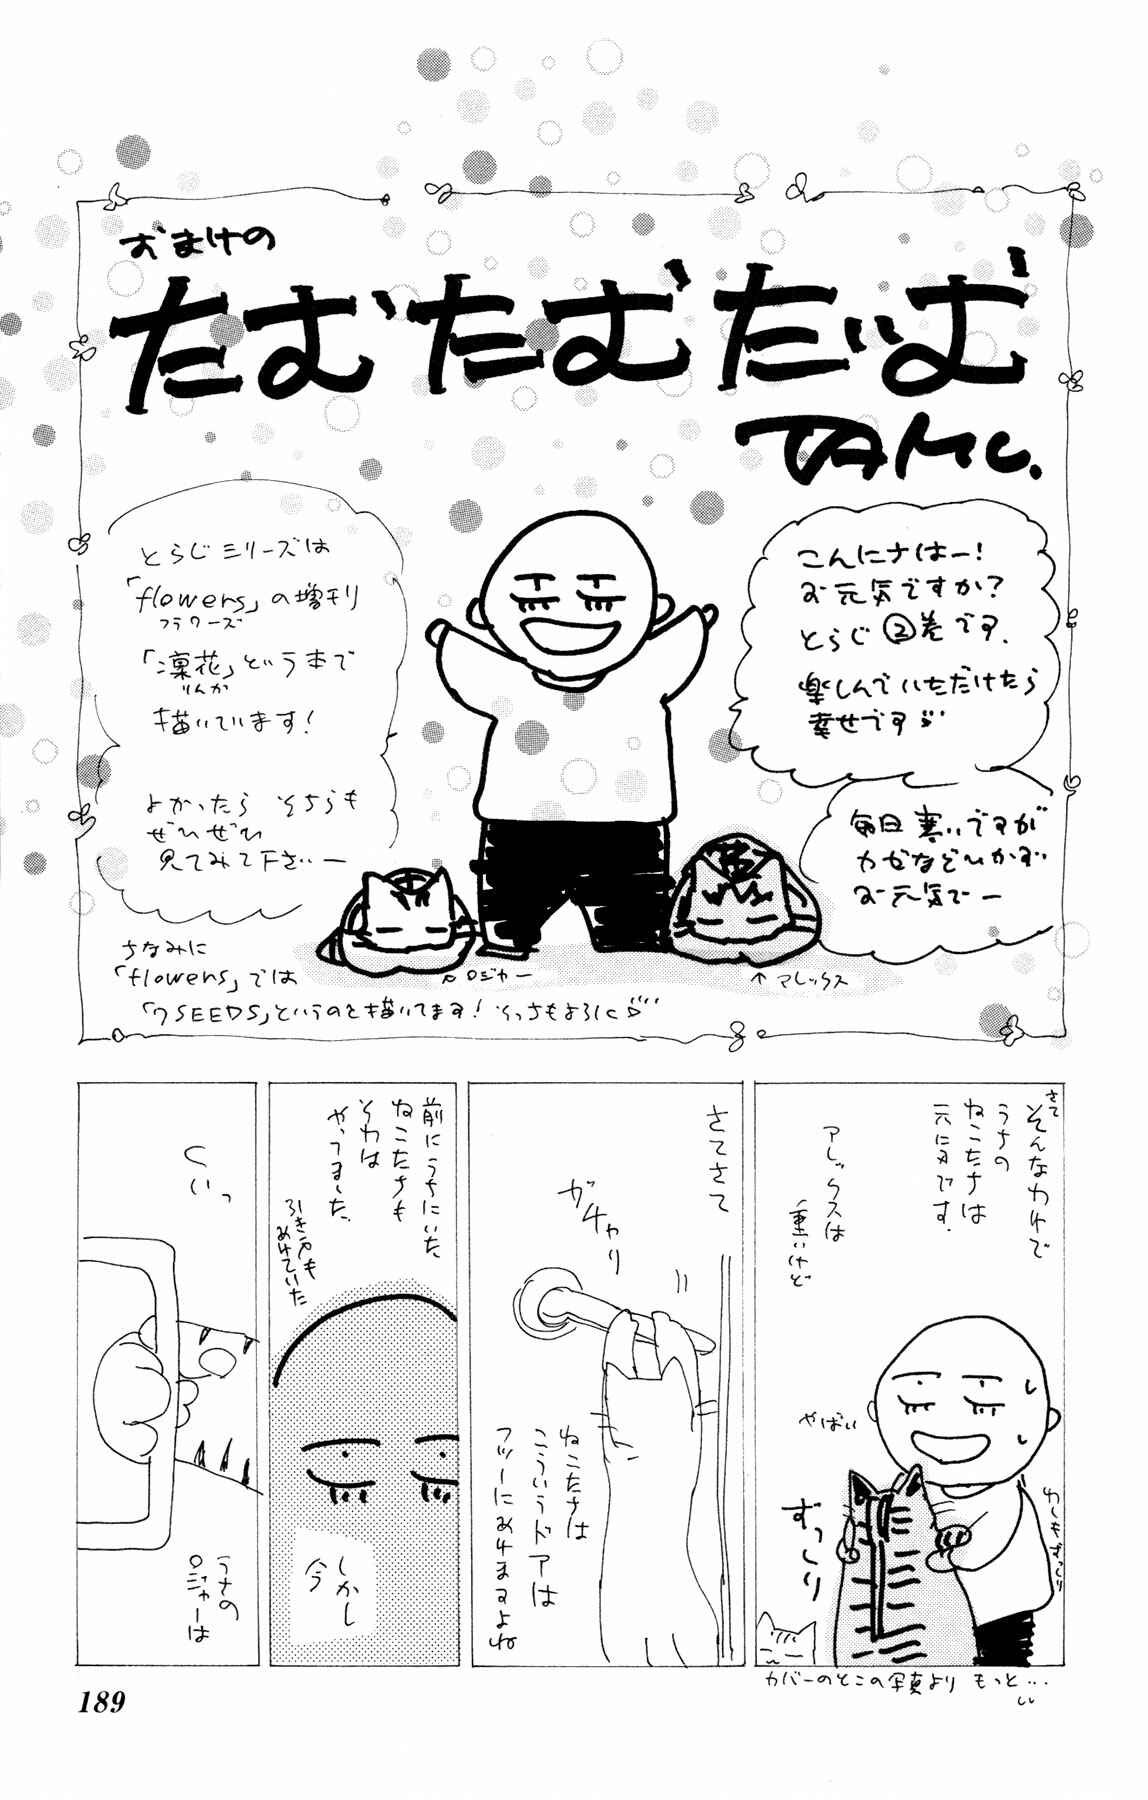 おまけの
たむたむたいむ
TAMU.
こんにちはー!
お元気ですか?
とらじ②巻です。
楽しんでいただけたら
幸せです
毎日寒いですが
カゼなどひかず
お元気でー
とらじシリーズは
「flowers」の増刊
フラワーズ
「凜花」という本で
りんか
描いています!
よかったら そちらも
ぜひぜひ
見てみて下さいー
ちなみに
「flowers」では
「7SEEDS」というのを描いてます! そっちもよろしく
↑ロジャー
↑アレックス
さて
そんなわけで
うちの
ねこたちは
元気です。
アレックスは
重いけど
やばい
ずっしり
わしもずっしり
カバーのそでの写真より もっと…
さてさて
ガチャリ
ねこたちは
こういうドアは
フツーにあけますよね
前にうちにいた
ねこたちも
それは
やってました。
引き戸も
あけていた
しかし
今
くいっ
うちの
ロジャーは
189